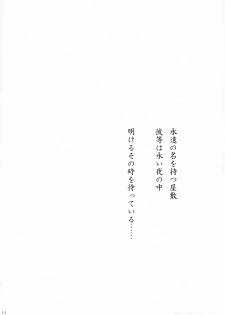 永遠の名を持つ屋敷
彼等は永い夜の中
明けるその時を待っている……